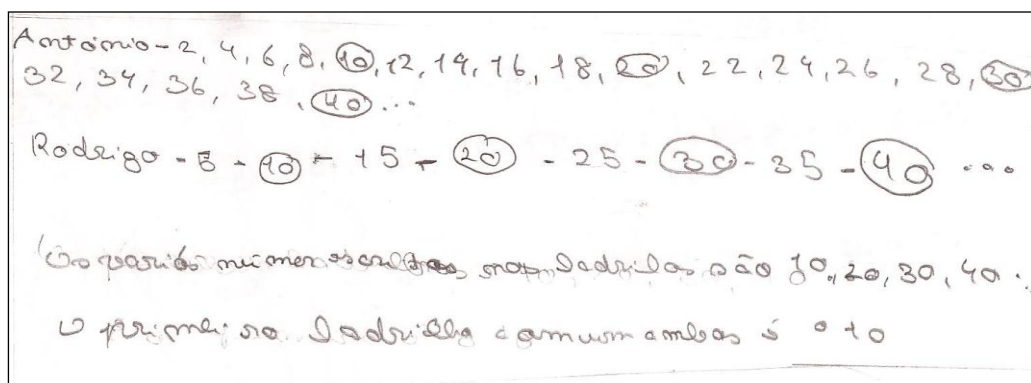 António - 2, 4, 6, 8, 10, 12, 14, 16, 18, 20, 22, 24, 26, 28, 30
32, 34, 36, 38, 40...
Rodrigo - 5 - 10 - 15 - 20 - 25 - 30 - 35 - 40 ...
Os varios números nos ladrilos são 10, 20, 30, 40.
O primeiro ladrilho comum ambos é o 10